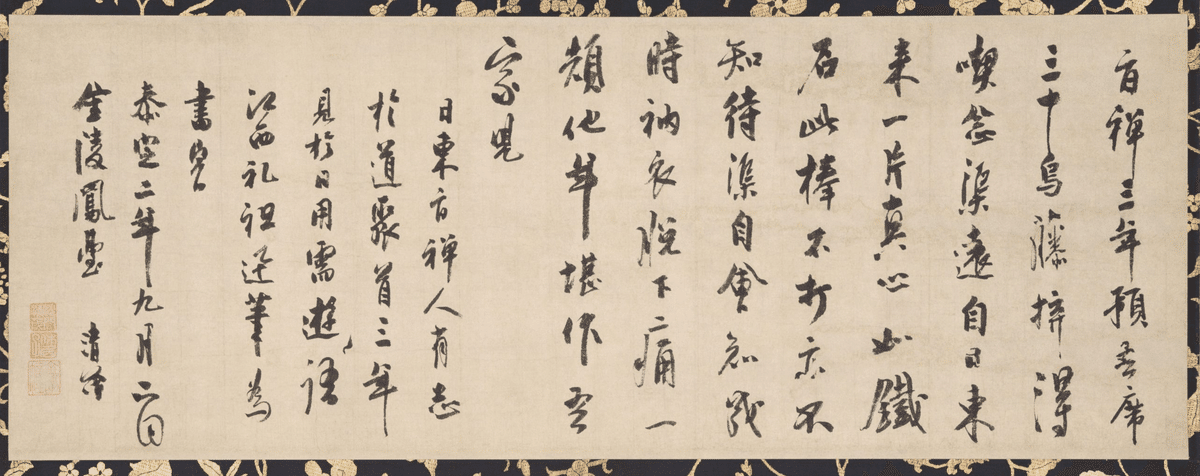 旨禪三年預吾席
三十烏藤拚得
喫念渠遠自日東
來一片真心如鐵
石此棒不打亦不
知待渠自會知
時衲衣脫下痛一
頓他年堪作吾
家兒
日東旨禪人有志
於道聚首三年
見於日用需遊語
江西礼祖迅筆為
書
泰定二年九月日
金陵鳳臺 清茂